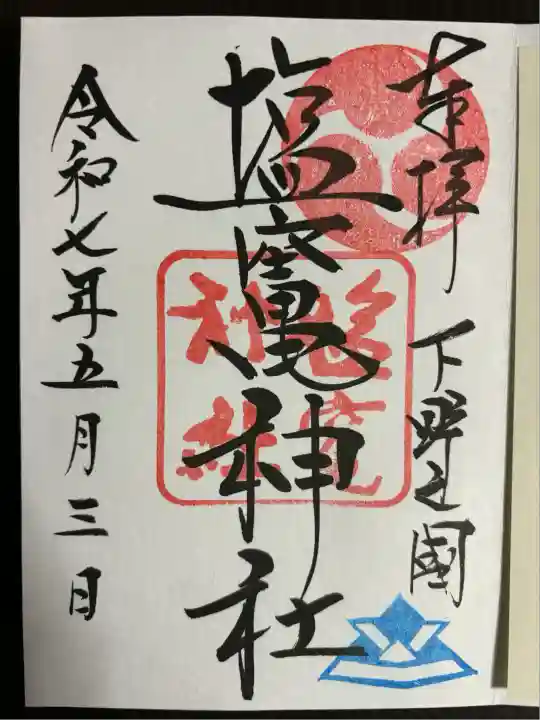 奉拝 下野之國
塩竈神社
塩竈神社
令和七年五月三日